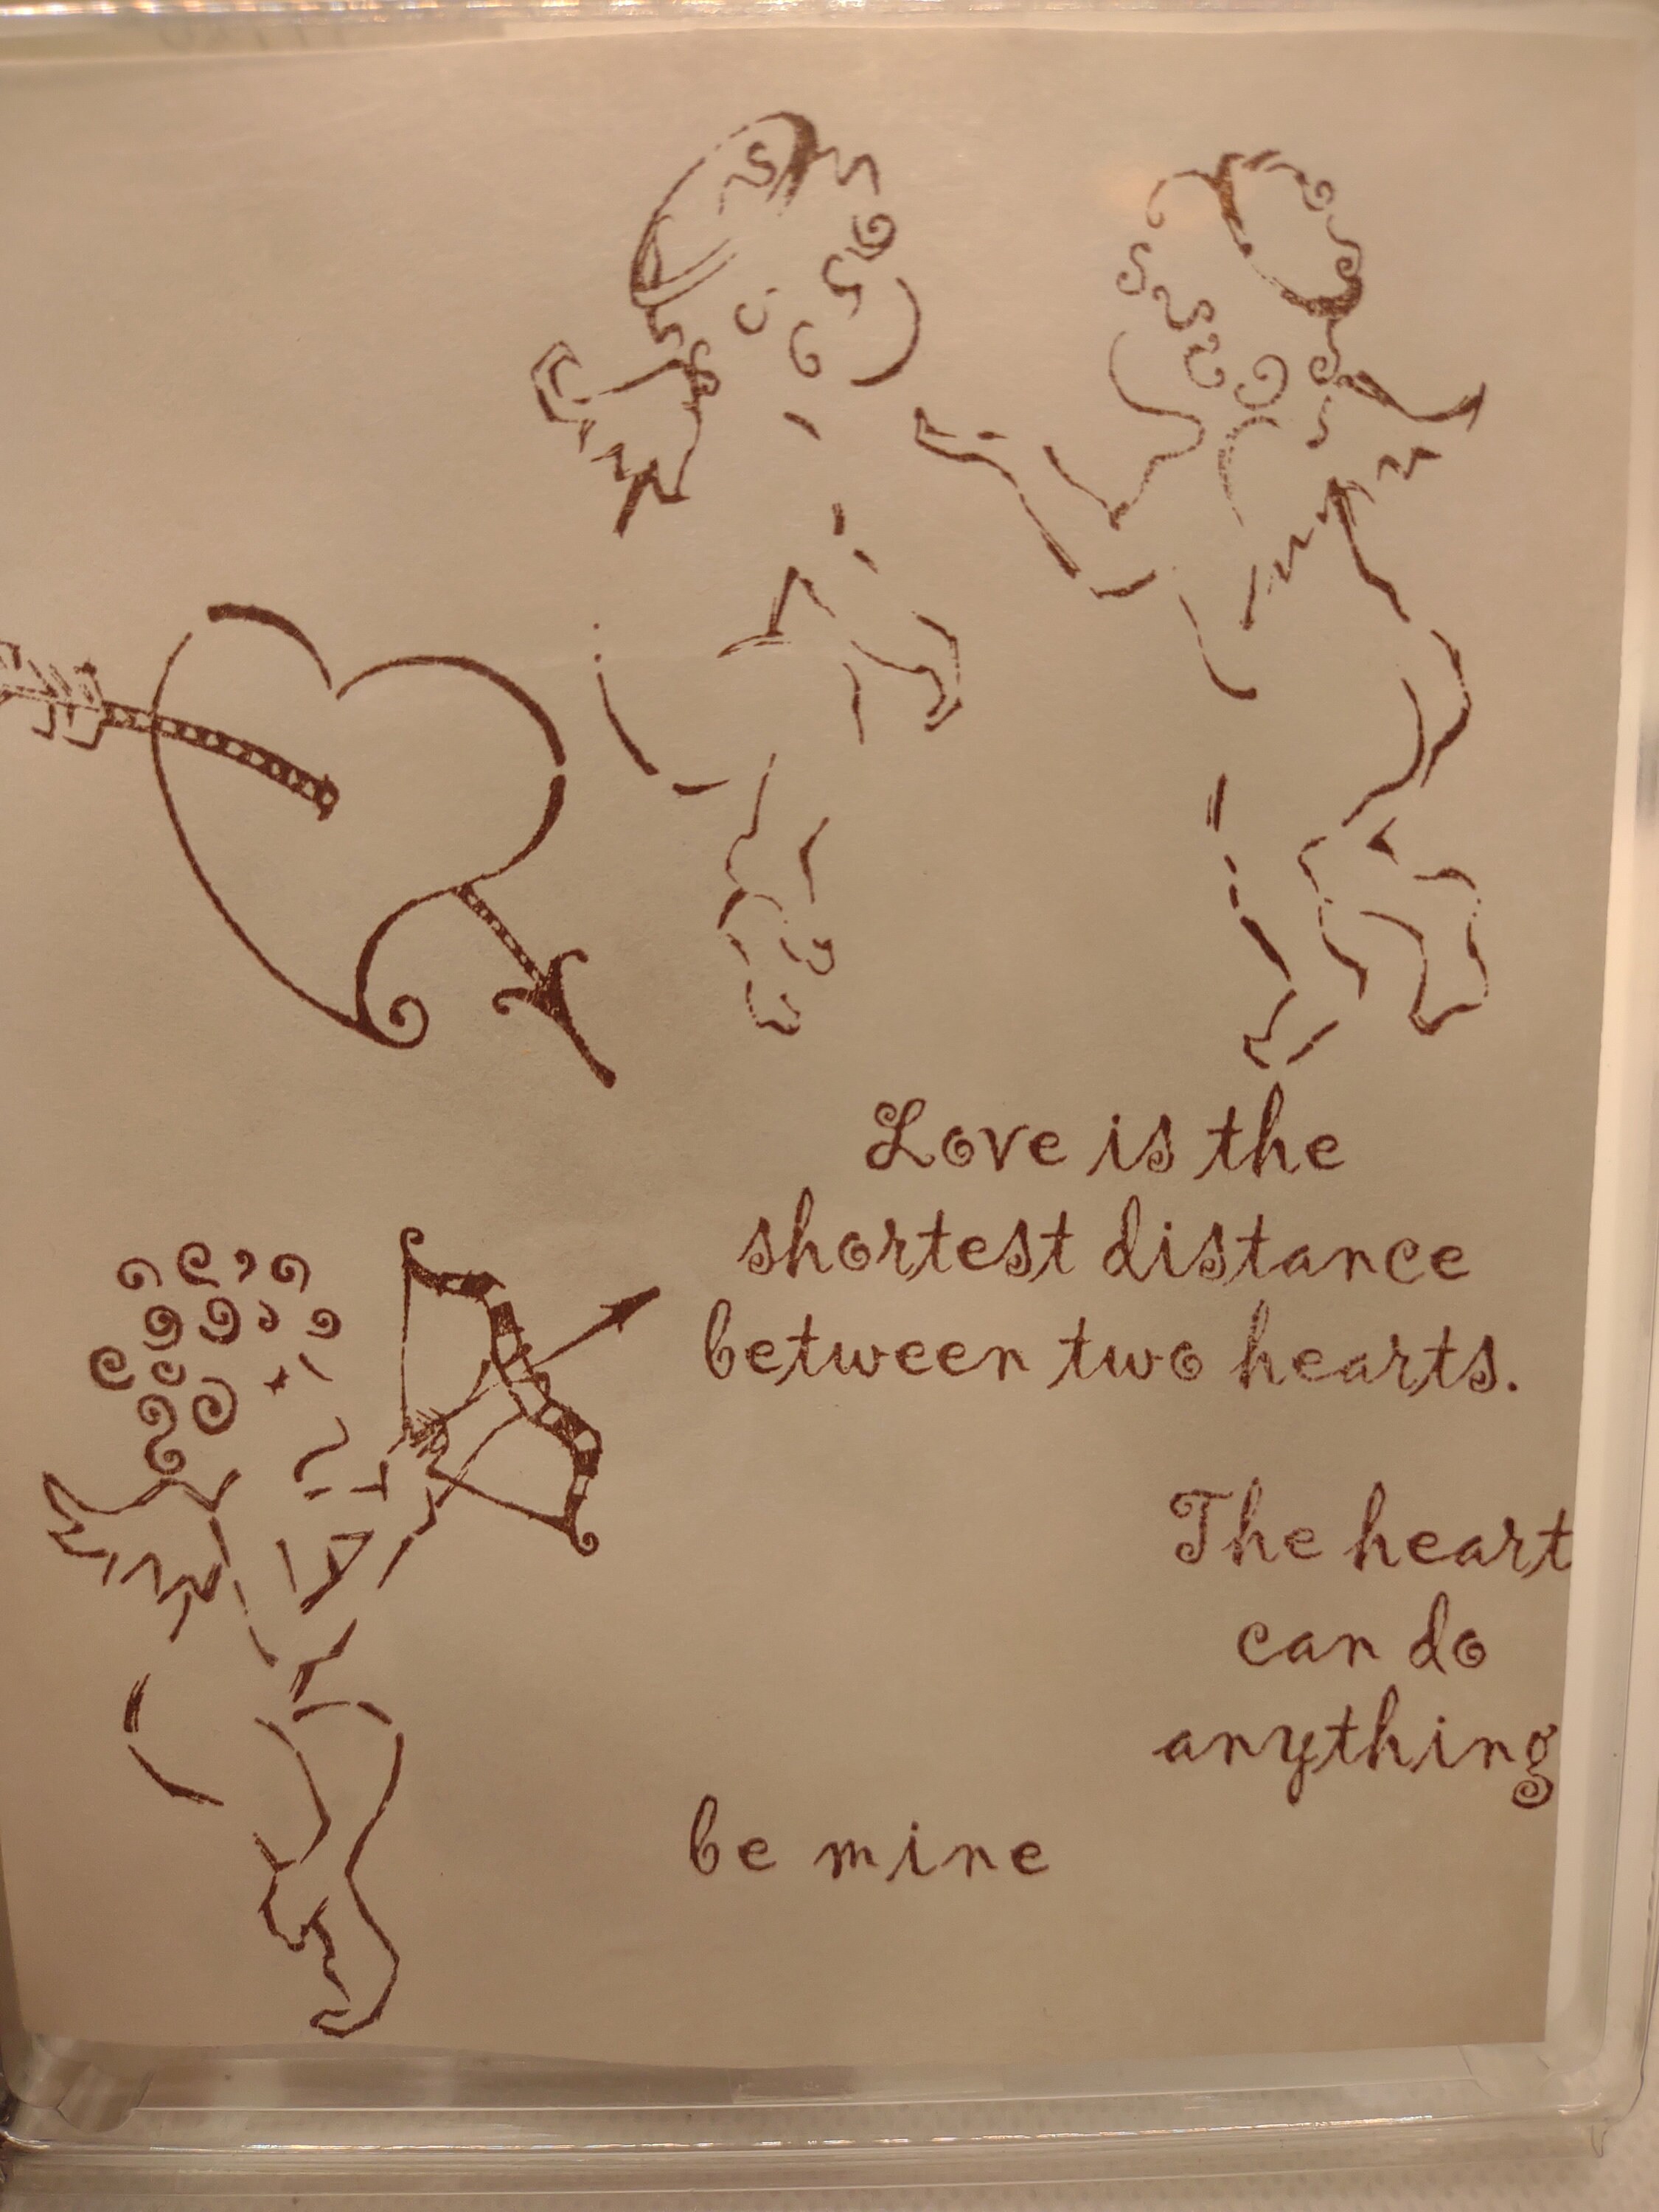 Love is the
shortest distance
between two hearts.
The heart
can do
anything
be mine